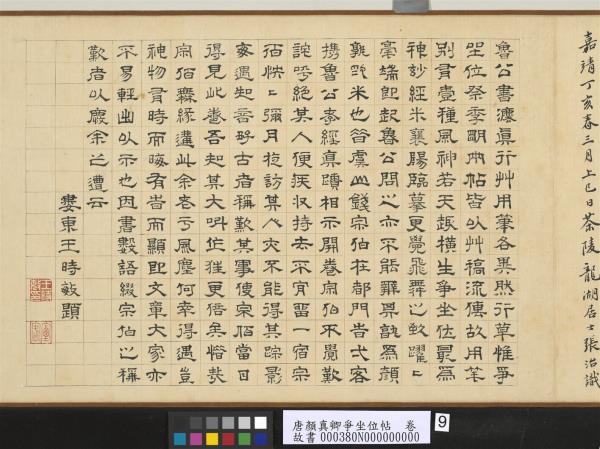 嘉靖丁亥春三月上巳日茶陵龍湖居士張治識
魯公書濃真行艸用筆各異然行草惟爭
坐位祭季明兩帖皆以艸稿流傳故用筆
別有壹種風神若天趣橫生爭坐位最為
神妙經米襄陽臨摹更覺飛舞之致躍躍
毫端即起魯公問之亦不能辯果孰為顏
孰為米也昔虞山錢宗伯在都門告弌客
攜魯公孝經真蹟相示開卷宗伯不覺歎
詫呼絕其人便疾收持去不肯留一宿宗
伯怏怏彌月夜訪其人夾不能得其踪影
每遇知音好古者稱歎其事使宗伯當日
得見此卷吾知其大叫作狂更倍矣惜哉
宗伯無緣遘此余老于風塵何幸得遇豈
神物有時而晦有旹而顯即文章大家亦
不易輕出以示也因書數語綴宗伯之稱
歎者以慶余之遭云
婁東王時敏題
唐顏真卿爭坐位帖 卷
故書 000380N000000000
9